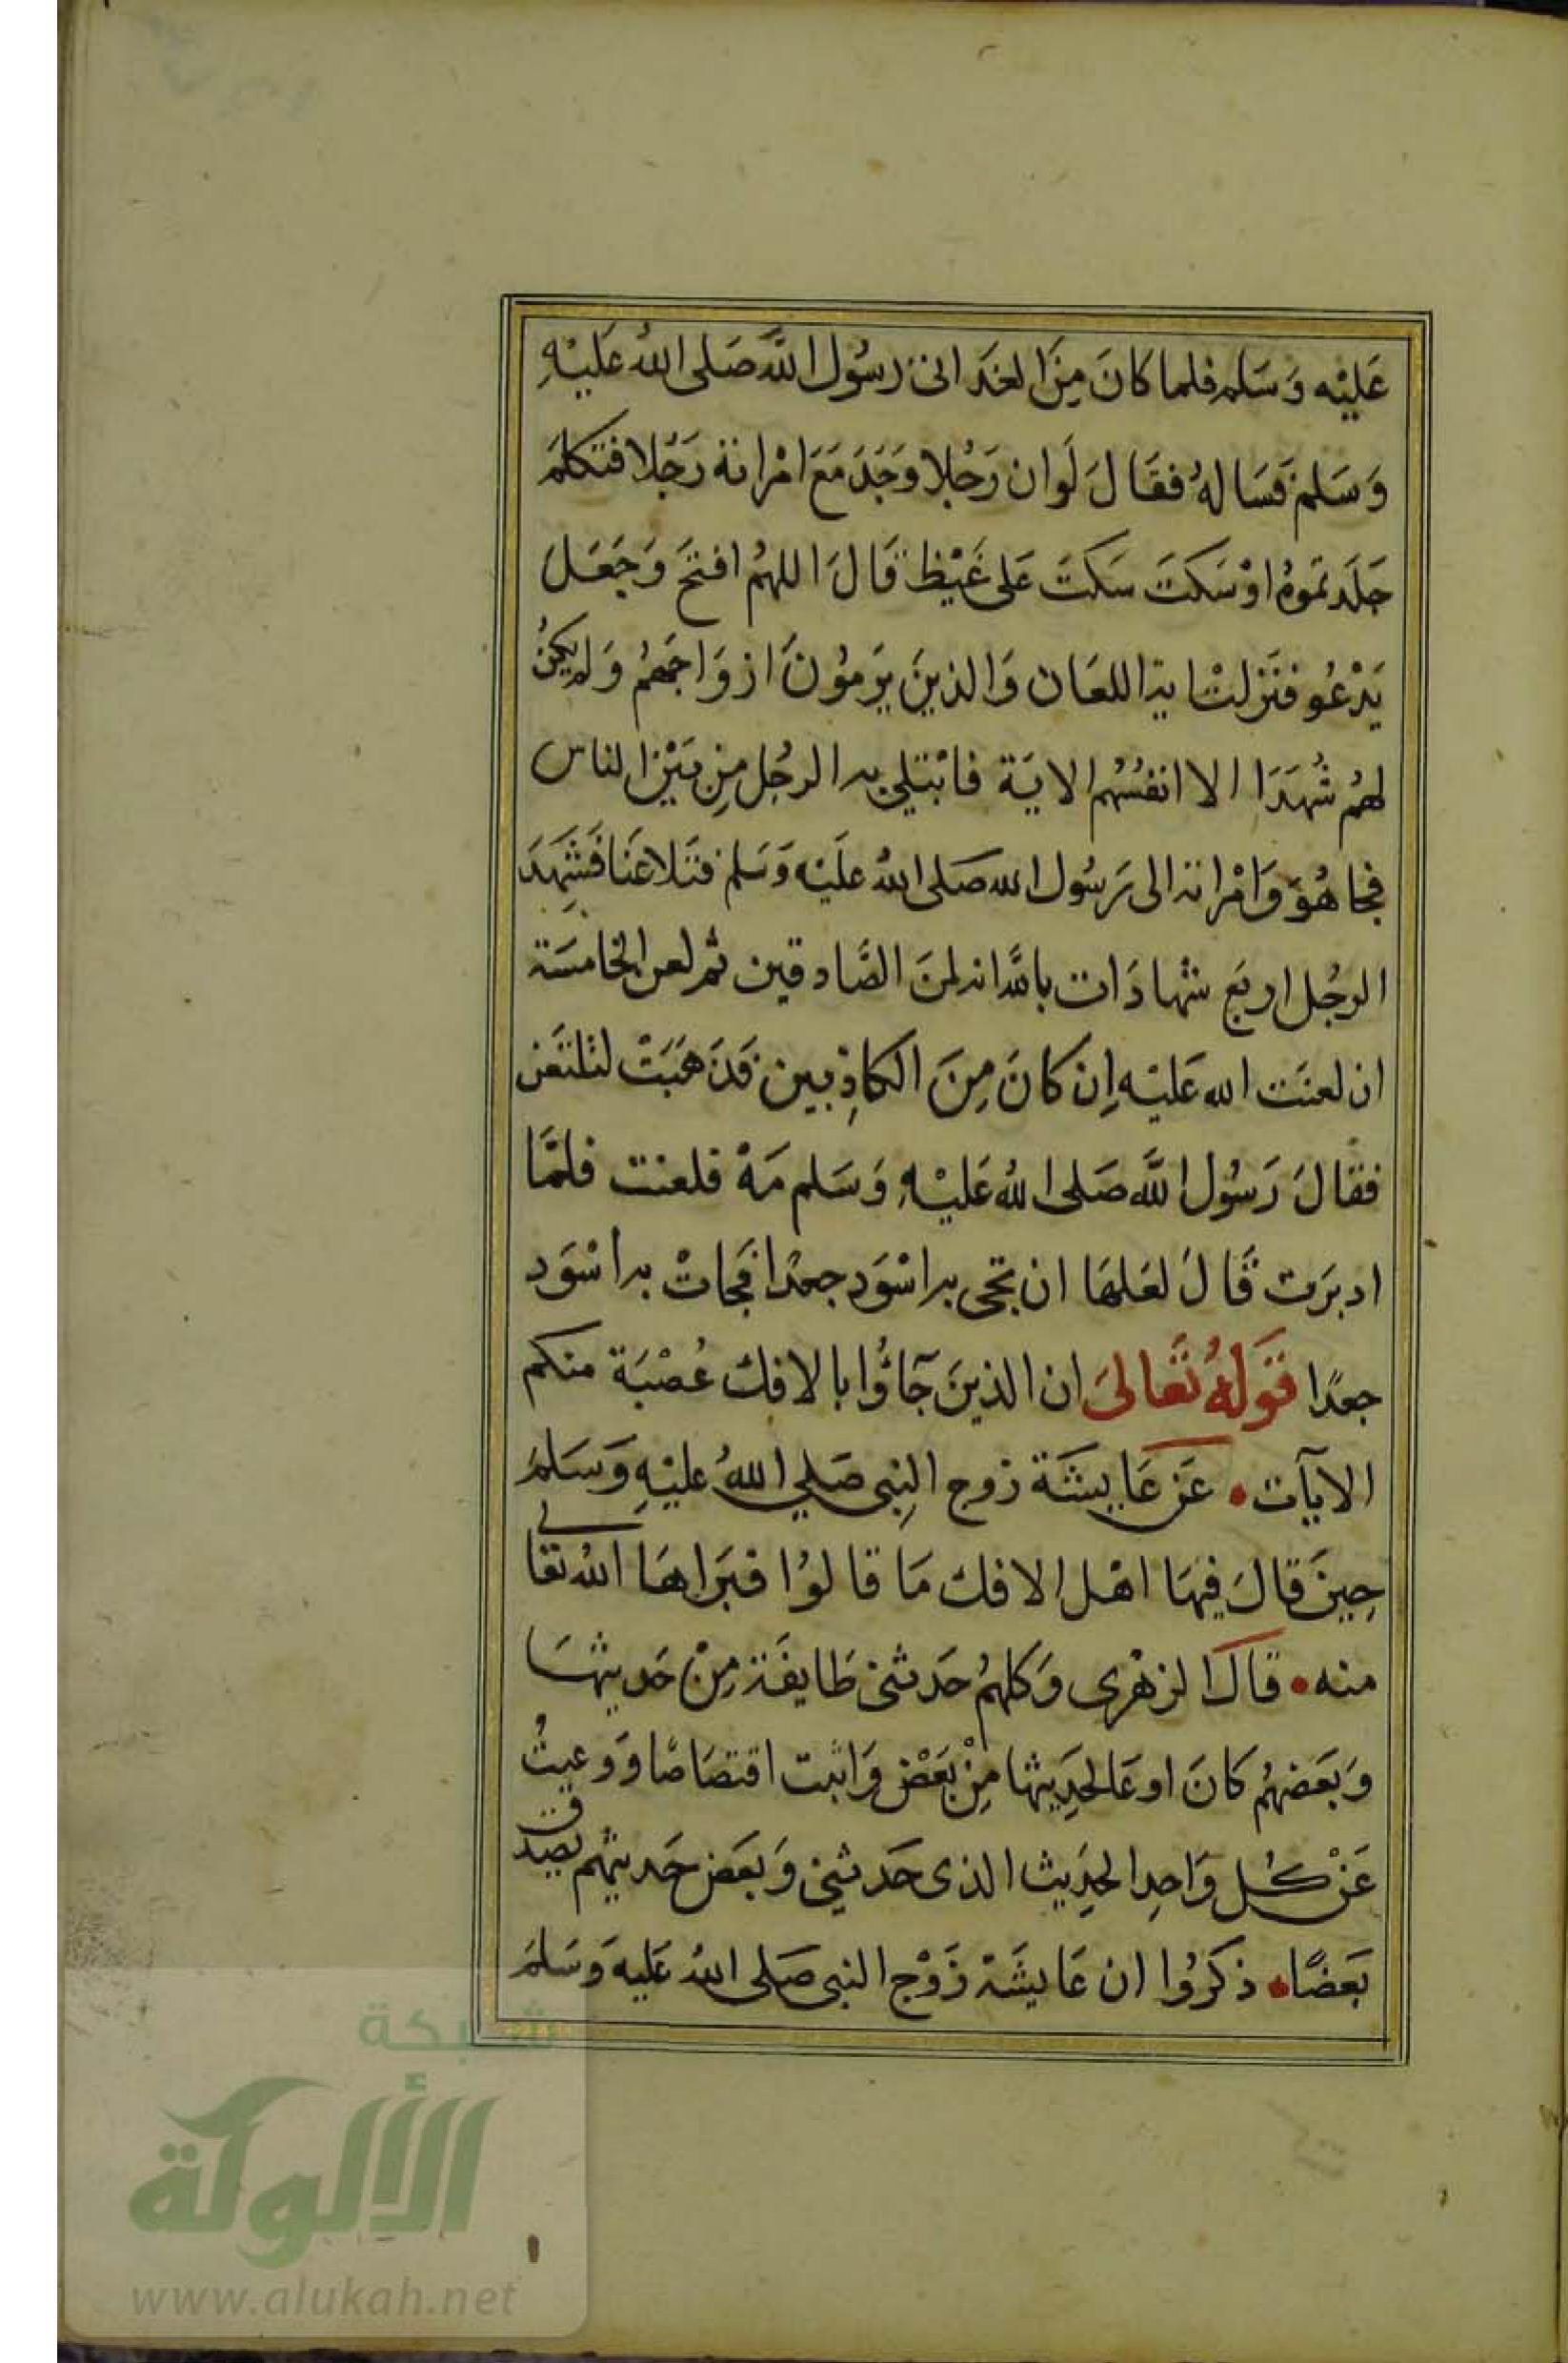 عَليْه وَسَلم فلما كانَ مِنَ الغَد اتى رسُول اللَّه صَلى اللهُ عَليْهِ
وَسَلم فَسَالهُ فقَالَ لَو ان رَجُلا وَجَدَ مَعَ امْراته رَجُلا فتكلمَ
جَلَد تموهُ اوْ سَكتَ سَكتَ عَلى غَيْظ قَالَ اللهمُ افتحَ وَجَعَلَ
يَدْعُو فنَزلتْ اية اللعَان وَالذينَ يَرمُونَ ازوَاجَهمُ وَلم يكنُ
لهُم شُهَدَا الا انفسُهُم الايَة فابْتلي به الرجُل مِن بَيْن الناس
فجا هُوَ وَامْراته الى رَسُول الله صَلى اللهُ عليْه وَسَلم فتَلاعَنا فَشَهِدَ
الرجُل اربَع شهادَات باللَّه انه لمنَ الصَّادقين ثم لعن الخامسَة
ان لعنَت الله عَليْه اِن كانَ مِنَ الكاذِبين فَذَهَبَتْ لتلتعَن
فقالَ رَسُول اللَّه صَلى اللهُ عَليْهِ وَسَلم مَهْ فلعنت فلمَّا
ادبرَت قَالَ لعَلهَا ان تجى به اسْوَد جعدًا فجَاتْ به اسْوَد
جعدًا قَولهُ تَعَالىَ ان الذينَ جَآؤُا بالافك عُصْبَة منكم
الآيآت • عَن عَايشَة زوج النِبى صَلي اللهُ عليْهِ وَسَلمَ
حِينَ قالَ فيهَا اهْل الافك مَا قالوُا فبَراهَا اللهُ تعالى
منه • قالَ الزهْرى وَكلهمُ حَدثنى طَايفَة مِنْ حَديثهَا
وَبَعضهُم كانَ اوعَا لحَدِيثها مِنْ بَعْض وَاثبت اقتصَاصًا وَوعيتُ
عَنْ كُل وَاحِد الحَدِيث الذى حَدثنِى وَبعَض حَديثهم يصَدق
بَعضًا • ذكرُوا ان عَايشَة زَوْج النبى صَلى اللهُ عَليه وَسَلمَ
شبكة
الألوكة
www.alukah.net